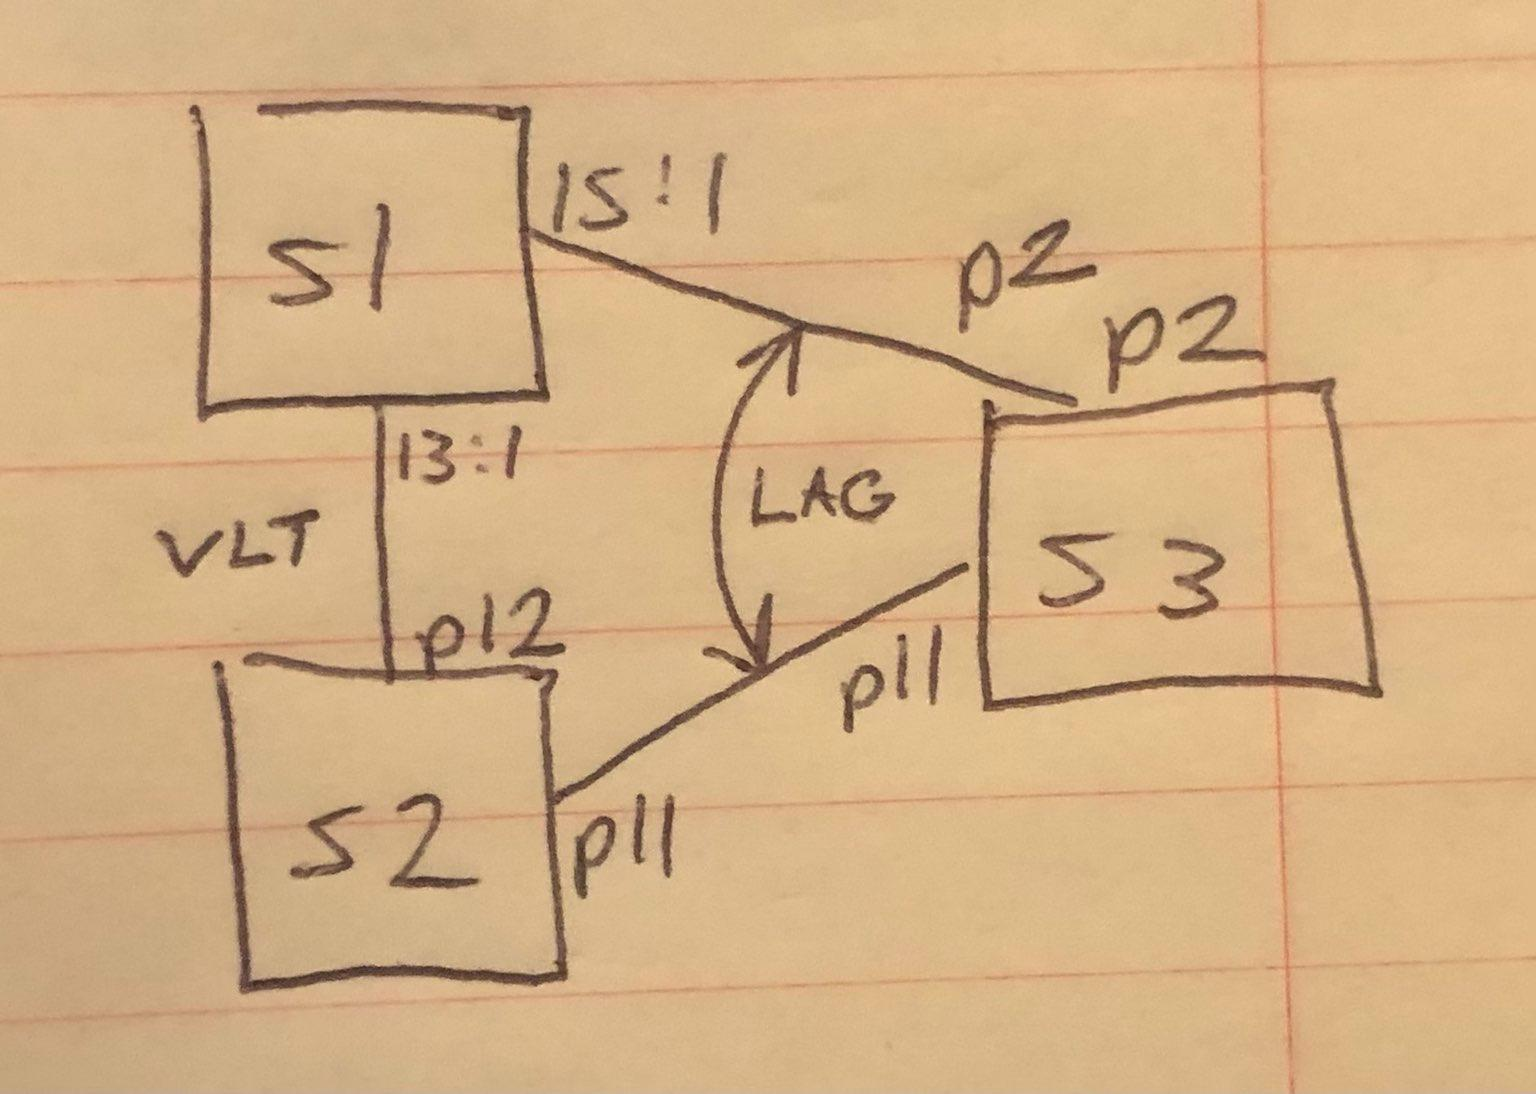 S1
15:1
p2
p2
13:1
LAG
VLT
S3
p12
p11
S2
p11